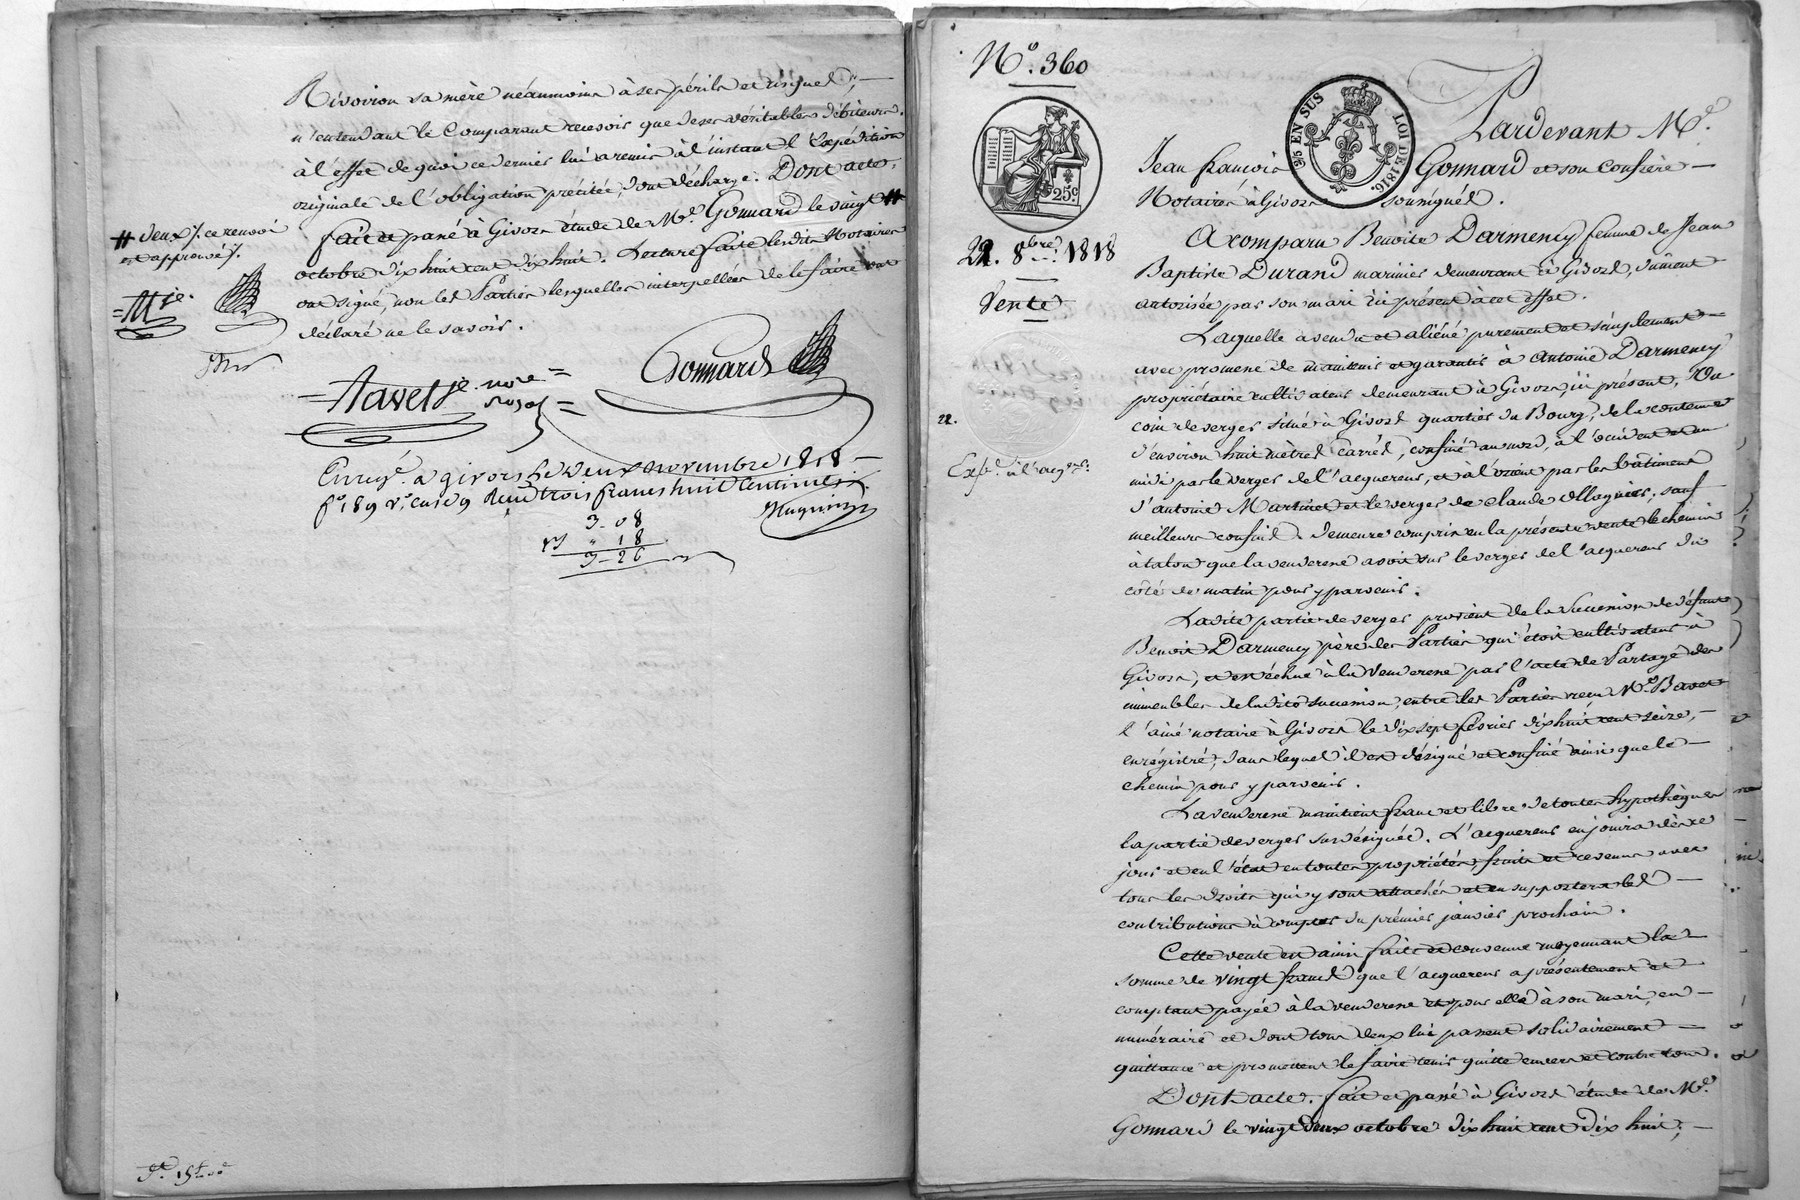 Rivoiron sa mère néanmoins à ses périls et risques; —
n'entendant le Comparant recevoir que de ses véritables débiteurs.
à l'effet de quoi ce dernier lui a remis à l'instant l'Expédition
originale de l'obligation précitée, dont décharge. Dont acte,
fait et passé à Givors étude de Me. Gonnard le vingt #
octobre dix huit cent dix huit. Lecture faite lesdits Notaires
ont signé, non les Parties lesquelles interpellées de le faire ont
déclaré ne le savoir.
# deux /. ce renvoi
est approuvé /.
Gonnard
Enregé. à givors le deux novembre 1818 —
fo. 189 vo. case 9 Reçu trois francs huit centimes.
3-08
" 18
3-26
No. 360
25 EN SUS
LOI DE 1816.
25c.
22. 8bre. 1818
Vente
22.
Expn. à l'acqr.
Pardevant Me.
Jean françois Gonnard et son Confrère —
Notaires à Givors soussignés.
A comparu Benoite Darmency femme de Jean
Baptiste Durand marinier demeurant à Givors, dûment
autorisée par son mari ici présent à cet effet.
Laquelle a vendu et aliéné purement et simplement —
avec promesse de maintenir et garantir à Antoine Darmency
propriétaire cultivateur demeurant à Givors, ici présent, Un
coin de verger situé à Givors quartier du Bourg, de la contenue
d'environ huit mètres carrés, confiné au nord, à l'occident et au
midi par le verger de l'acquereur, et à l'orient par les bâtiment
d'antoine Martinet et le verger de claude Magnier, sauf
meilleurs confins. Demeure compris en la présente vente le chemin
à talon que la venderesse avoit sur le verger de l'acquereur du
côté de matin pour y parvenir.
Ladite partie de verger provient de la Succession de défunt
Benoit Darmency père des Parties qui étoit cultivateur à
Givors, et est échue à la Venderesse par l'acte de Partage des
immeubles de ladite succession, entre les Parties reçu Me. Bavet
l'ainé notaire à Givors le dix sept février dix huit cent seize, —
enrégistré, dans lequel il est désigné et confiné ainsi que le —
chemin pour y parvenir.
La venderesse maintient franc et libre de toutes hypothèques
la partie de verger sus désignée. L'acquereur en jouira dès ce
jour et en l'état en toutes propriétés fruits et revenus avec
tous les droits qui y sont attachés et en supportera les —
contributions à compter du prémier janvier prochain.
Cette vente est ainsi faite et convenue moyennant la
somme de vingt francs que l'acquereur a présentement et
comptant payée à la venderesse et pour elle à son mari, en —
numéraire et dont tous deux lui passent solidairement —
quittance et promettent le faire tenir quitte envers et contre tous.
Dont acte. fait et passé à Givors étude de Me.
Gonnard le vingt deux octobre dix huit cent dix huit; —